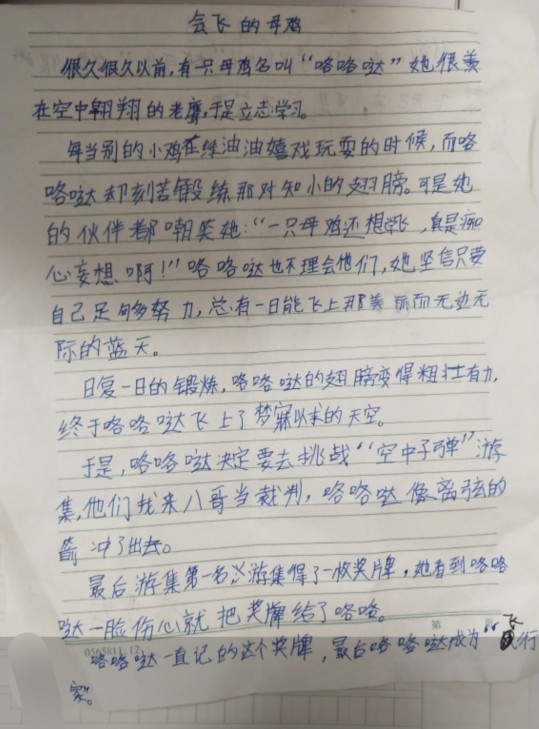 会飞的母鸡
很久很久以前,有一只母鸡名叫“咯咯哒”她很羡
在空中翱翔的老鹰,于是立志学习。
每当别的小鸡在绿油油嬉戏玩耍的时候,而咯
咯哒却刻苦锻练那对知小的翅膀。可是她
的伙伴都嘲笑她:“一只母鸡还想飞,真是痴
心妄想啊!”咯咯哒也不理会他们,她坚信只要
自己足够努力,总有一日能飞上那美丽而无边无
际的蓝天。
日复一日的锻炼,咯咯哒的翅膀变得粗壮有力,
终于咯咯哒飞上了梦寐以求的天空。
于是,咯咯哒决定要去挑战“空中子弹”游
集,他们找来八哥当裁判,咯咯哒像离弦的
箭冲了出去。
最后游集第一名,游集得了一枚奖牌,她看到咯咯
哒一脸伤心就把奖牌给了咯咯。
第
0565811.12
咯咯哒一直记的这个奖牌,最后咯咯哒成为“飞行
家”。